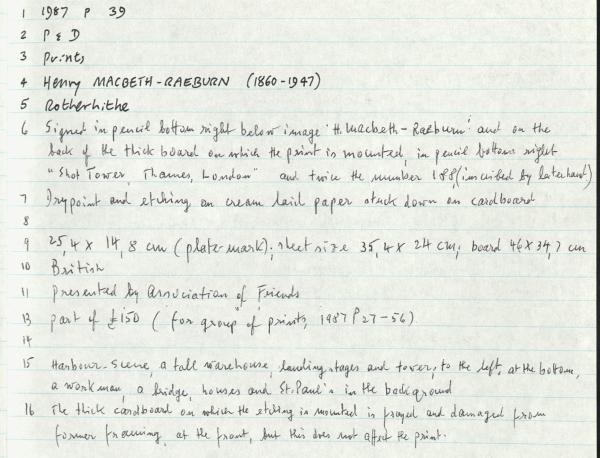 1 1987 P 39
2 P & D
3 Prints
4 Henry MACBETH-RAEBURN (1860-1947)
5 Rotherhithe
6 Signed in pencil bottom right below image 'H. Macbeth-Raeburn' and on the
back of the thick board on which the print is mounted, in pencil bottom right
"Shot Tower, Thames, London" and twice the number 188 (inscribed by later hand)
7 Drypoint and etching on cream laid paper stuck down on cardboard
8
9 25,4 x 14,8 cm (plate-mark); sheet size 35,4 x 24 cm; board 46 x 34,7 cm
10 British
11 presented by Association of Friends
13 part of £150 (for group of prints, 1987 P 27-56)
14
15 Harbour-scene, a tall warehouse, landing stages and tower, to the left, at the bottom,
a workman, a bridge, houses and St. Paul's in the background
16 The thick cardboard on which the etching is mounted is frayed and damaged from
former framing, at the front, but this does not affect the print.